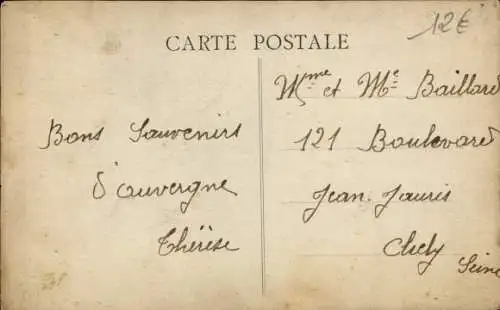 12€
CARTE POSTALE
Bons Souvenirs
d'auvergne
Thérèse
Mme et Mr Baillard
121 Boulevard
Jean. Jauris
Clichy
Seine